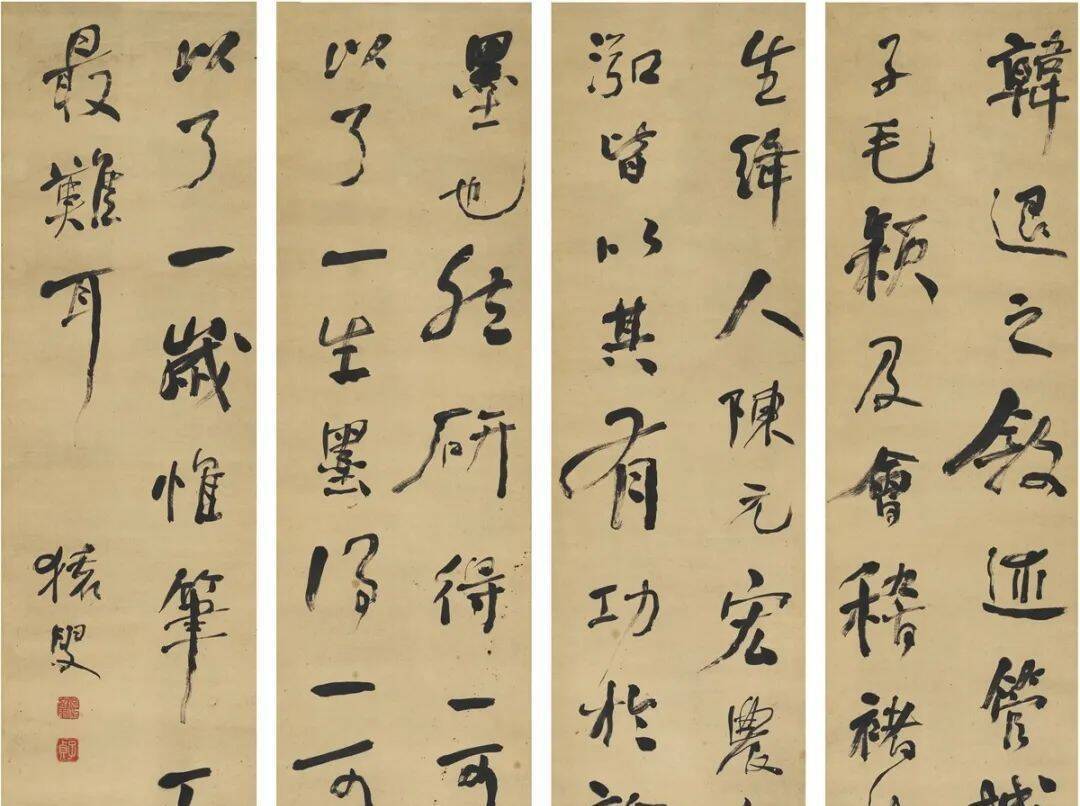 韓退之敘述管城
子毛穎及會稽褚
生絳人陳元宏農
泓皆以其有功於
墨也然研得一可
以了一生墨得一可
以了一歲惟筆
最難耳
猨叟
子貞